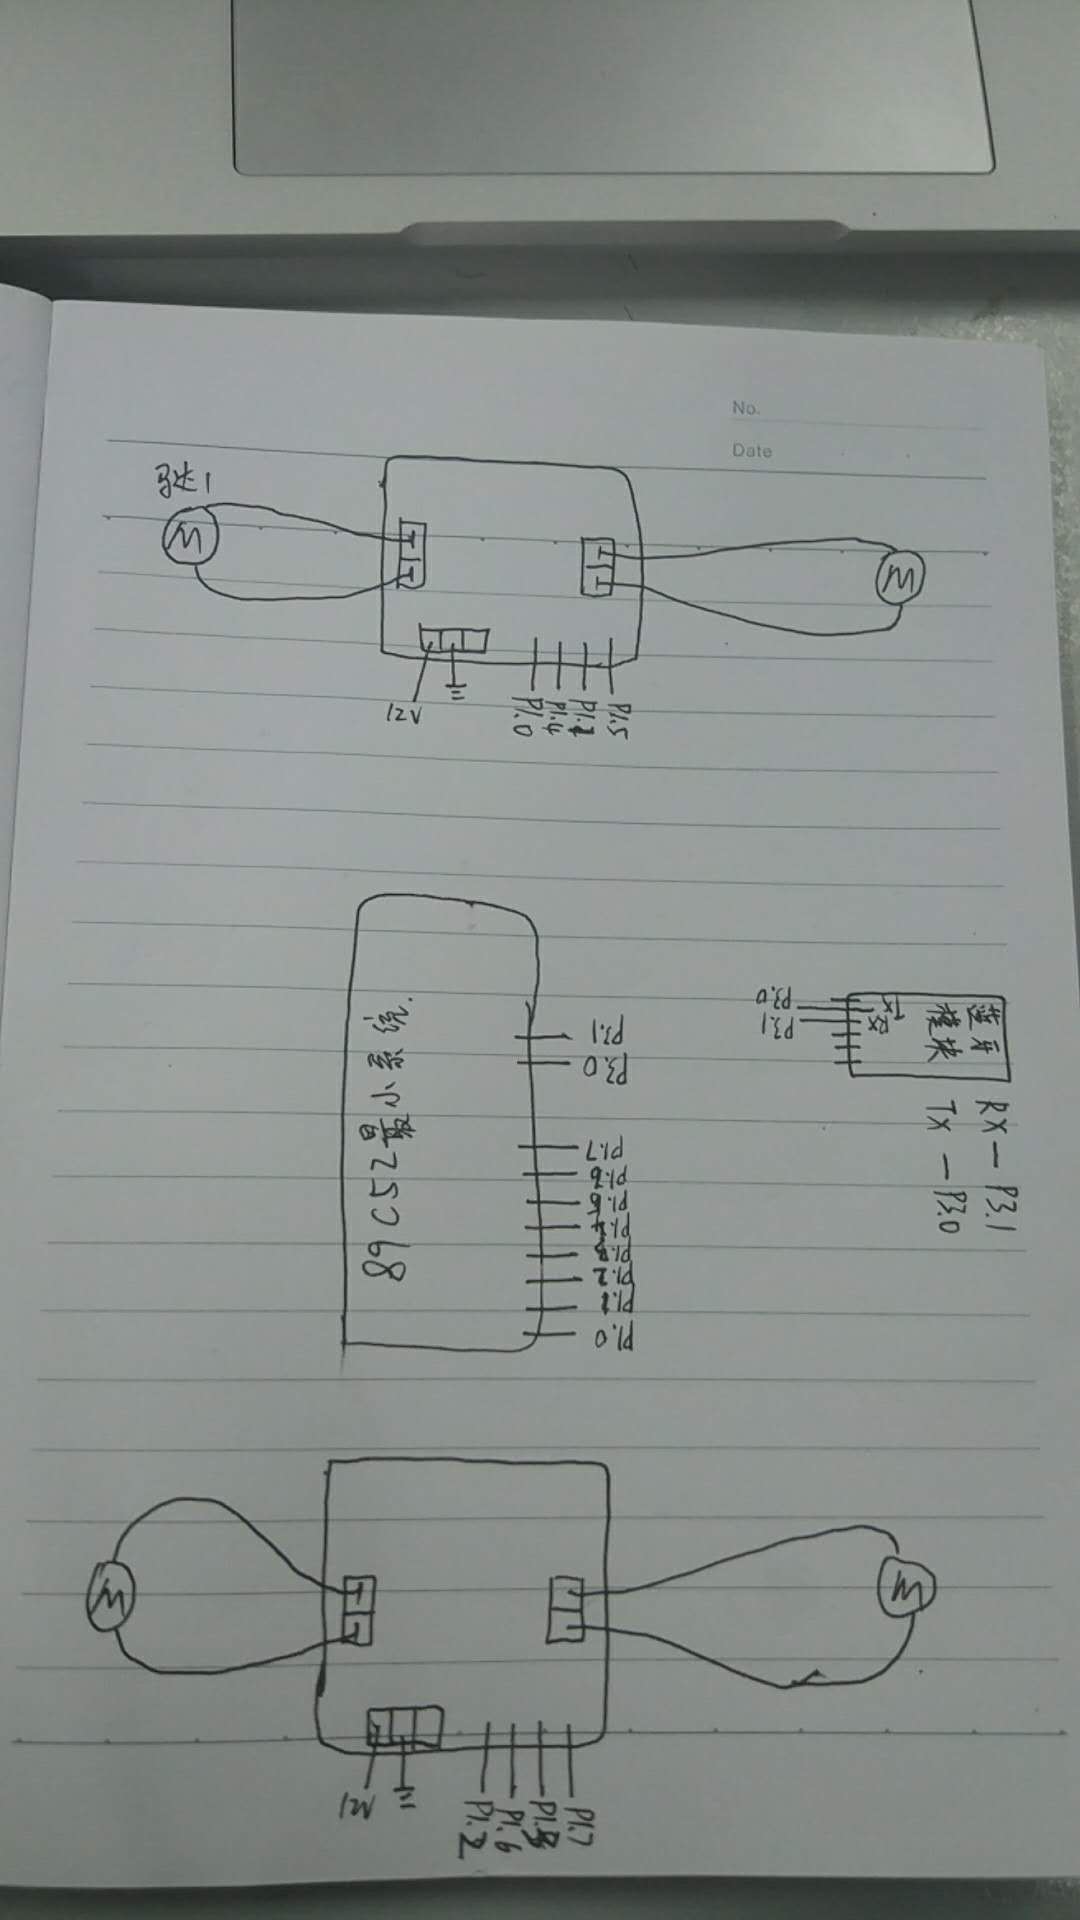 No.
Date
马达1
M
M
12V
P1.0
P1.4
P1.1
P1.5
89C52最小系统.
P3.1
P3.0
P1.7
P1.6
P1.5
P1.4
P1.3
P1.2
P1.1
P1.0
P3.0
P3.1
TX
RX
蓝牙
模块
RX — P3.1
TX — P3.0
M
M
12V
P1.2
P1.6
P1.3
P1.7